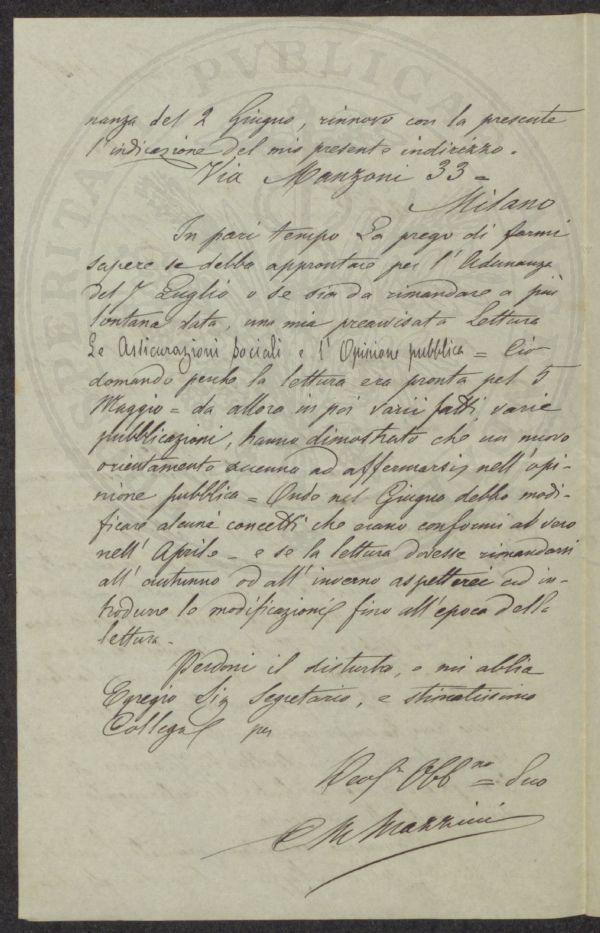 nanza del 2 Giugno, rinnovo con la presente
l'indicazione del mio presente indirizzo.
Via Manzoni 33 =
Milano
In pari tempo La prego di farmi
sapere se debba approntare per l'Adunanza
del 7 Luglio o se sia da rimandare a più
lontana data, una mia preavvisata Lettura
Le Assicurazioni Sociali e l'Opinione pubblica = Ciò
domando perchè la lettura era pronta pel 5
Maggio = da allora in poi varii fatti, varie
pubblicazioni, hanno dimostrato che un nuovo
orientamento accenna ad affermarsi, nell'opi-
nione pubblica = Onde nel Giugno debbo modi-
ficare alcuni concetti che erano conformi al vero
nell'Aprile - e se la lettura dovesse rimandarsi
all'autunno od all'inverno aspetterei ad in-
trodurre le modificazioni fino all'epoca della
lettura.
Perdoni il disturbo, e mi abbia
Egregio Sig Segretario, e stimatissimo
Collega per
Obb.mo = Suo
C M Mazzini
PVBLICA